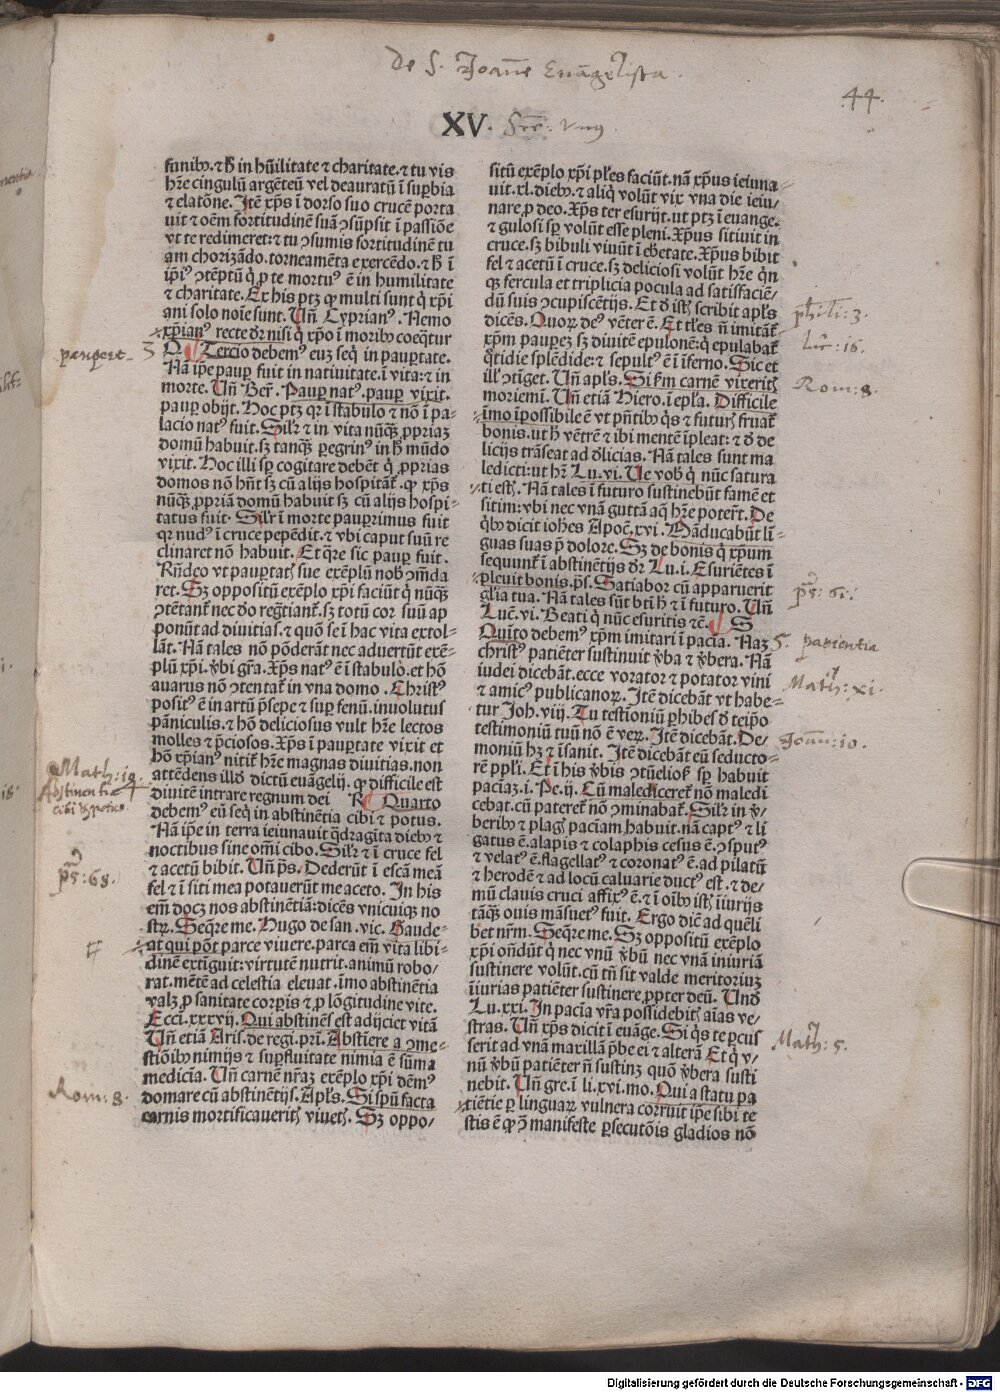 De S. Joan̄e Euāgelista.
44.
XV. Ser: vnꝰ.
funibꝰ. ⁊ h̄ in hūilitate ⁊ charitate. ⁊ tu vis
hr̄e cingulū argēteū vel deauratū ī suꝑbia
⁊ elatōne. Itē xp̄s ī dorso suo crucē porta
uit ⁊ oēm fortitudinē suā ↄsūpsit ī passiōe
vt te redimeret: ⁊ tu ↄsumis fortitudinē tu
am chorizādo. torneamēta exercēdo. ⁊ h̄ ī
ip̄iꝰ ↄtēptū q̇ ꝓ te mortuꝰ ē in humilitate
⁊ charitate. Ex his ptꝫ ꝙ multi sunt q̇ xp̄i
ani solo noīe sunt. Un̄ Cyprianꝰ. Nemo
xp̄ianꝰ recte dr̄ nisi q̇ xp̄o ī moribꝰ coeq̄tur
Tercio debemꝰ euꝫ seq̇ in pauꝑtate.
Nā ip̄e pauꝑ fuit in natiuitate. ī vita: ⁊ in
morte. Un̄ Ber̄. Pauꝑ natꝰ. pauꝑ vixit.
pauꝑ obijt. Hoc ptꝫ qꝛ ī stabulo ⁊ nō ī pa-
lacio natꝰ fuit. Silr̄ ⁊ in vita nūqꝫ ꝓpriaꝫ
domū habuit. sꝫ tanqꝫ ꝑegrinꝰ in h̄ mūdo
vixit. Hoc illi sꝑ cogitare debēt q̇ ꝓprias
domos nō hn̄t sꝫ cū alijs hospitāt᷒. ꝙ xp̄s
nūqꝫ ꝓpriā domū habuit sꝫ cū alijs hospi-
tatus fuit. Silr̄ ī morte pauꝑrimus fuit
qꝛ nudꝰ ī cruce pepēdit. ⁊ vbi caput suū re
clinaret nō habuit. Et q̄re sic pauꝑ fuit.
Rn̄deo vt pauꝑtatꝭ sue exēplū nob̄ ↄmēda
ret. Sꝫ oppositū exēplo xp̄i faciūt q̇ nūqꝫ
ↄtētant᷒ nec d̄o regr̄tiant᷒. sꝫ totū cor suū ap
ponūt ad diuitias. ⁊ quō se ī hac vita extol-
lāt. Nā tales nō pōderāt nec aduertūt exē-
plū xp̄i. v̄bi gr̄a. Xp̄s natꝰ ē ī stabulo. et hō
auarus nō ↄtentat᷒ in vna domo. Christꝰ
positꝰ ē in artū p̄sepe ⁊ suꝑ fenū. inuolutus
pāniculis. ⁊ hō deliciosus vult hr̄e lectos
molles ⁊ p̄ciosos. Xp̄s ī pauꝑtate vixit et
hō xp̄ianꝰ nitit᷒ hr̄e magnas diuitias. non
attēdens illd̄ dictū euāgelij. ꝙ difficile est
diuitē intrare regnum dei R Quarto
debemꝰ eū seq̇ in abstinētia cibi ⁊ potus.
Nā ip̄e in terra ieiunauit q̄dragīta diebꝰ ⁊
noctibus sine om̄i cibo. Silr̄ ⁊ ī cruce fel
⁊ acetū bibit. Un̄ p̄s. Dederūt ī escā meā
fel ⁊ ī siti mea potauerūt me aceto. In his
em̄ docꝫ nos abstinētiā: dicēs vnicuiqꝫ no
stꝝ. Seq̄re me. Hugo de san. vic. Gaude-
at qui pōt parce viuere. parca em̄ vita libi-
dinē extīguit: virtutē nutrit. animū robo-
rat. mētē ad celestia eleuat. īmo abstinētia
valꝫ ꝓ sanitate corꝑis ⁊ ꝓ lōgitudine vite.
Ecci. xxxvij. Qui abstinēs est adijciet vitā
Un̄ etiā Aris. de regi. pri. Abstīere a ↄme-
stiōibꝰ nimijs ⁊ suꝑfluitate nimia ē sūma
medicīa. Un̄ carnē nr̄aꝫ exēplo xp̄i dēmꝰ
domare cū abstinētijs. Apl̄s. Si sp̄u facta
carnis mortificaueritꝭ viuetꝭ. Sꝫ oppo-
sitū exēplo xp̄i pl̄es faciūt. nā xp̄us ieiuna-
uit. xl. diebꝰ. ⁊ aliq̇ volūt vix vna die ieiu-
nare ꝓ deo. Xp̄s ter esurijt. vt ptꝫ ī euange.
⁊ gulosi sꝑ volūt esse pleni. Xp̄us sitiuit in
cruce. sꝫ bibuli viuūt ī eb̄etate. Xp̄us bibit
fel ⁊ acetū ī cruce. sꝫ deliciosi volūt hr̄e q̇n
qꝫ fercula et triplicia pocula ad satisfaciē-
dū suis ↄcupiscētijs. Et d̄ istꝭ scribit apl̄s
dicēs. Quoꝝ deꝰ vēter ē. Et tl̄es n̄ imitāt᷒
xp̄m pauꝑeꝫ sꝫ diuitē epulonē: q̇ epulabat᷒
q̄tidie splēdide: ⁊ sepultꝰ ē ī īferno. Sic et
ill̄ ↄtīget. Un̄ apl̄s. Si fm̄ carnē vixeritꝭ
moriemī. Un̄ etiā Hiero. ī epl̄a. Difficile
īmo īpossibile ē vt pn̄tibꝰ q̇s ⁊ futurꝭ fruat᷒
bonis. ut h̄ vētrē ⁊ ibi mentē īpleat: ⁊ d̄ de
licijs trāseat ad d̄licias. Nā tales sunt ma
ledicti: ut hr̄ Lu. vi. Ue vob̄ q̇ nūc satura
ti estꝭ. Nā tales ī futuro sustinebūt famē et
sitim: vbi nec vnā guttā aq̄ hr̄e poterr̄t. De
q̇bꝰ dicit ioh̄es Apoc̄. xvi. Māducabūt lī-
guas suas p̄ dolore. Sꝫ de bonis q̇ xp̄um
sequunt᷒ ī abstinētijs dr̄ Lu. i. Esuriētes ī
pleuit bonis. p̄s. Satiabor cū apparuerit
gl̄ia tua. Nā tales sūt btī h̄ ⁊ ī futuro. Un̄
Luc̄. vi. Beati q̇ nūc esuritis ⁊c̄. S
Quīto debemꝰ xp̄m imitari ī pacīa. Naꝫ
christꝰ patiēter sustinuit v̄ba ⁊ v̄bera. Nā
iudei dicebāt. ecce vorator ⁊ potator vini
⁊ amicꝰ publicanoꝝ. Itē dicebāt vt habe-
tur Joh. viij. Tu testīoniū ꝑhibes d̄ teip̄o
testimoniū tuū nō ē veꝝ. Itē dicebāt. De-
moniū hꝫ ⁊ īsanit. Itē dicebāt eū seducto-
rē ppl̄i. Et ī his v̄bis ↄtūeliosꝭ sꝑ habuit
pacīaꝫ. i. Pe. ij. Cū malediceret᷒ nō maledi
cebat. cū pateret᷒ nō ↄminabat᷒. Silr̄ in v̄-
beribꝰ ⁊ plagꝭ pacīam habuit. nā captꝰ ⁊ li
gatus ē. alapis ⁊ colaphis cesus ē. ↄsputꝰ
⁊ velatꝰ ē. flagellatꝰ ⁊ coronatꝰ ē. ad pilatū
⁊ herodē ⁊ ad locū caluarie ductꝰ est. ⁊ de-
mū clauis cruci affixꝰ ē. ⁊ ī oībꝰ istꝭ īiurijs
tāqꝫ ouis māsuetꝰ fuit. Ergo dic̄ ad quēli
bet nr̄m. Seq̄re me. Sꝫ oppositū exēplo
xp̄i on̄dūt q̇ nec vnū v̄bū nec vnā iniuriā
sustinere volūt. cū tn̄ sit valde meritoriuꝫ
īiurias patiēter sustinere ꝓpter deū. Und̄
Lu. xxi. In pacīa vr̄a possidebitꝭ aīas ve-
stras. Un̄ xp̄s dicit ī euāge. Si q̇s te ꝑcus
serit ad vnā maxillā p̄be ei ⁊ alterā. Et q̇ v-
nū v̄bū patiēter n̄ sustinꝫ quō v̄bera susti
nebit. Un̄ gre. ī li. xvi. mo. Qui a statu pa
tiētie ꝑ linguaꝝ vulnera corruit ip̄e sibi te
stis ē ꝙ ꝓ manifeste ꝑsecutōis gladios nō
paupert. 3
Math: 19.
Abstinentia 4
cibi et potus
ps: 68.
Rom: 8.
phili: 3.
luc: 16.
Rom: 8.
ps: 61.
5. patientia
Math: xi.
Joan: 10.
Math: 5.
Digitalisierung gefördert durch die Deutsche Forschungsgemeinschaft - DFG